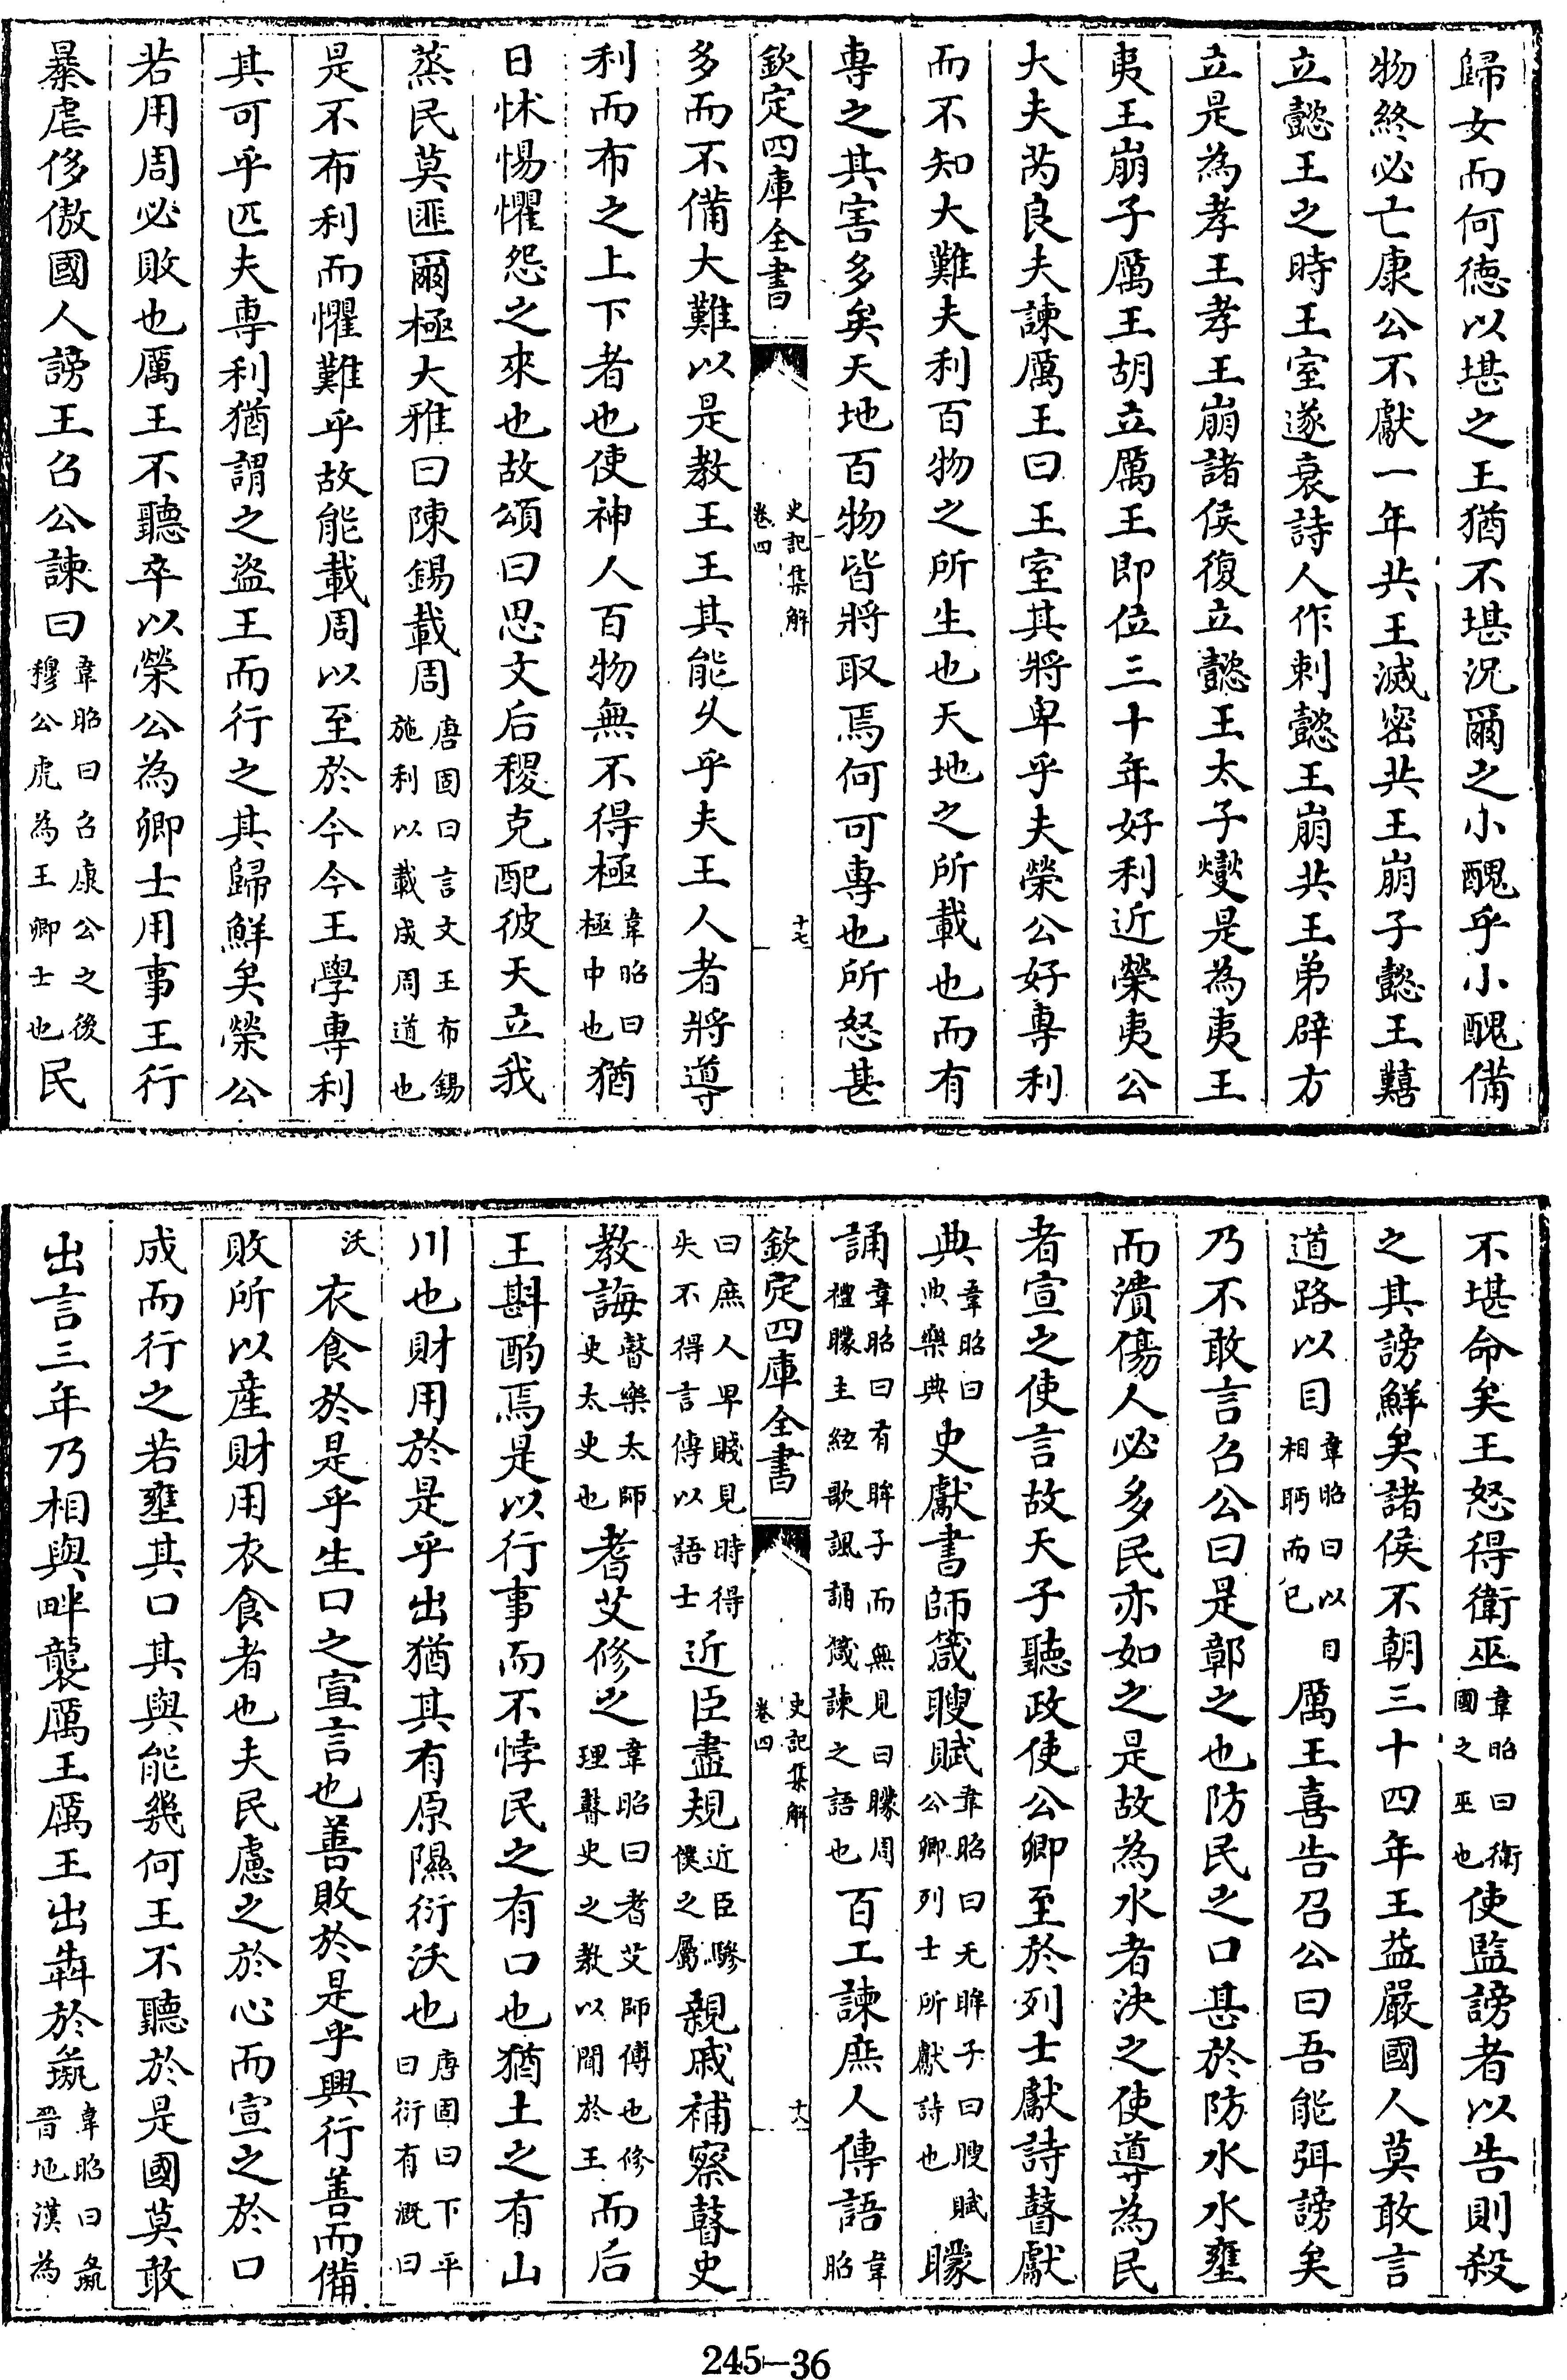 歸女而何德以堪之王猶不堪況爾之小醜乎小醜備
物終必亡康公不獻一年共王滅密共王崩子懿王囏
立懿王之時王室遂衰詩人作刺懿王崩共王弟辟方
立是為孝王孝王崩諸侯復立懿王太子燮是為夷王
夷王崩子厲王胡立厲王即位三十年好利近榮夷公
大夫芮良夫諫厲王曰王室其將卑乎夫榮公好專利
而不知大難夫利百物之所生也天地之所載也而有
專之其害多矣天地百物皆將取焉何可專也所怒甚
欽定四庫全書 史記集解 卷四 十七
多而不備大難以是教王王其能久乎夫王人者將導
利而布之上下者也使神人百物無不得極韋昭曰極中也猶
日怵惕懼怨之來也故頌曰思文后稷克配彼天立我
蒸民莫匪爾極大雅曰陳錫載周唐固曰言文王布錫施利以載成周道也
是不布利而懼難乎故能載周以至於今今王學專利
其可乎匹夫專利猶謂之盜王而行之其歸鮮矣榮公
若用周必敗也厲王不聽卒以榮公為卿士用事王行
暴虐侈傲國人謗王召公諫曰韋昭曰召康公之後穆公虎為王卿士也民
不堪命矣王怒得衛巫韋昭曰衛國之巫也使監謗者以告則殺
之其謗鮮矣諸侯不朝三十四年王益嚴國人莫敢言
道路以目韋昭曰以目相眄而已厲王喜告召公曰吾能弭謗矣
乃不敢言召公曰是鄣之也防民之口甚於防水水壅
而潰傷人必多民亦如之是故為水者決之使導為民
者宣之使言故天子聽政使公卿至於列士獻詩瞽獻
典韋昭曰典樂典史獻書師箴瞍賦韋昭曰无眸子曰瞍賦公卿列士所獻詩也矇
誦韋昭曰有眸子而無見曰矇周禮矇主絃歌諷誦箴諫之語也百工諫庶人傳語韋昭
欽定四庫全書 史記集解 卷四 十八
曰庶人卑賤見時得失不得言傳以語士近臣盡規近臣驂僕之屬親戚補察瞽史
教誨瞽樂太師史太史也耆艾修之韋昭曰耆艾師傅也修理瞽史之教以聞於王而后
王斟酌焉是以行事而不悖民之有口也猶土之有山
川也財用於是乎出猶其有原隰衍沃也唐固曰下平曰衍有溉曰
沃衣食於是乎生口之宣言也善敗於是乎興行善而備
敗所以產財用衣食者也夫民慮之於心而宣之於口
成而行之若壅其口其與能幾何王不聽於是國莫敢
出言三年乃相與畔襲厲王厲王出犇於彘韋昭曰彘晉地漢為
245-36